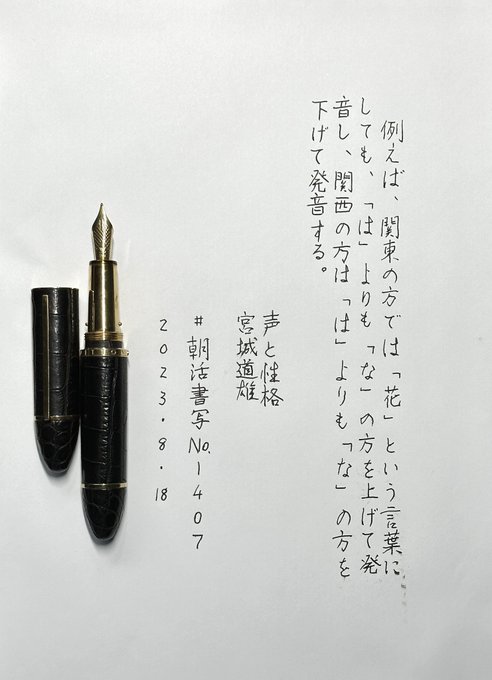 例えば、関東の方では「花」という言葉に
しても、「は」よりも「な」の方を上げて発
音し、関西の方は「は」よりも「な」の方を
下げて発音する。
声と性格
宮城道雄
#朝活書写No.1407
2023.8.18